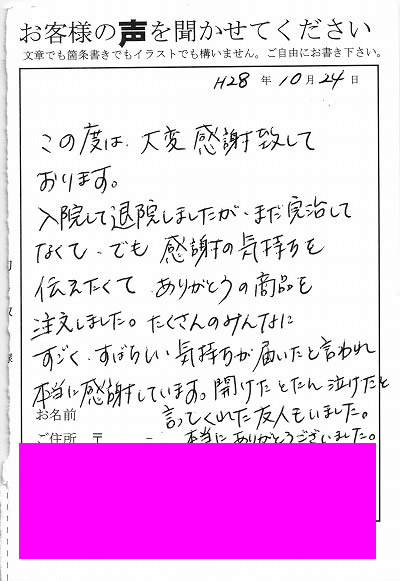 お客様の声を聞かせてください
文章でも箇条書きでもイラストでも構いません。ご自由にお書き下さい。
H28 年 10 月 24 日
この度は、大変感謝致して
おります。
入院して退院しましたが、まだ完治して
なくて、でも 感謝の気持ちを
伝えたくて、ありがとうの商品を
注文しました。たくさんのみんなに
すごく、すばらしい気持ちが届いたと言われ
本当に感謝しています。開けたとたん泣けたと
お名前 言ってくれた友人もいました。
ご住所 〒 - 本当にありがとうございました。